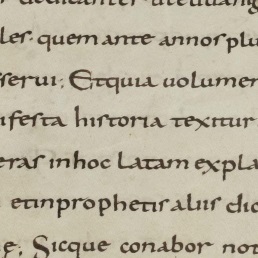 dedicanter
les. quem ante annos plu
serui; Et quia uolumen
ifesta historia texitur
eras in hoc latam expla
et in prophetis aliis dic
e; Sicque conabor not